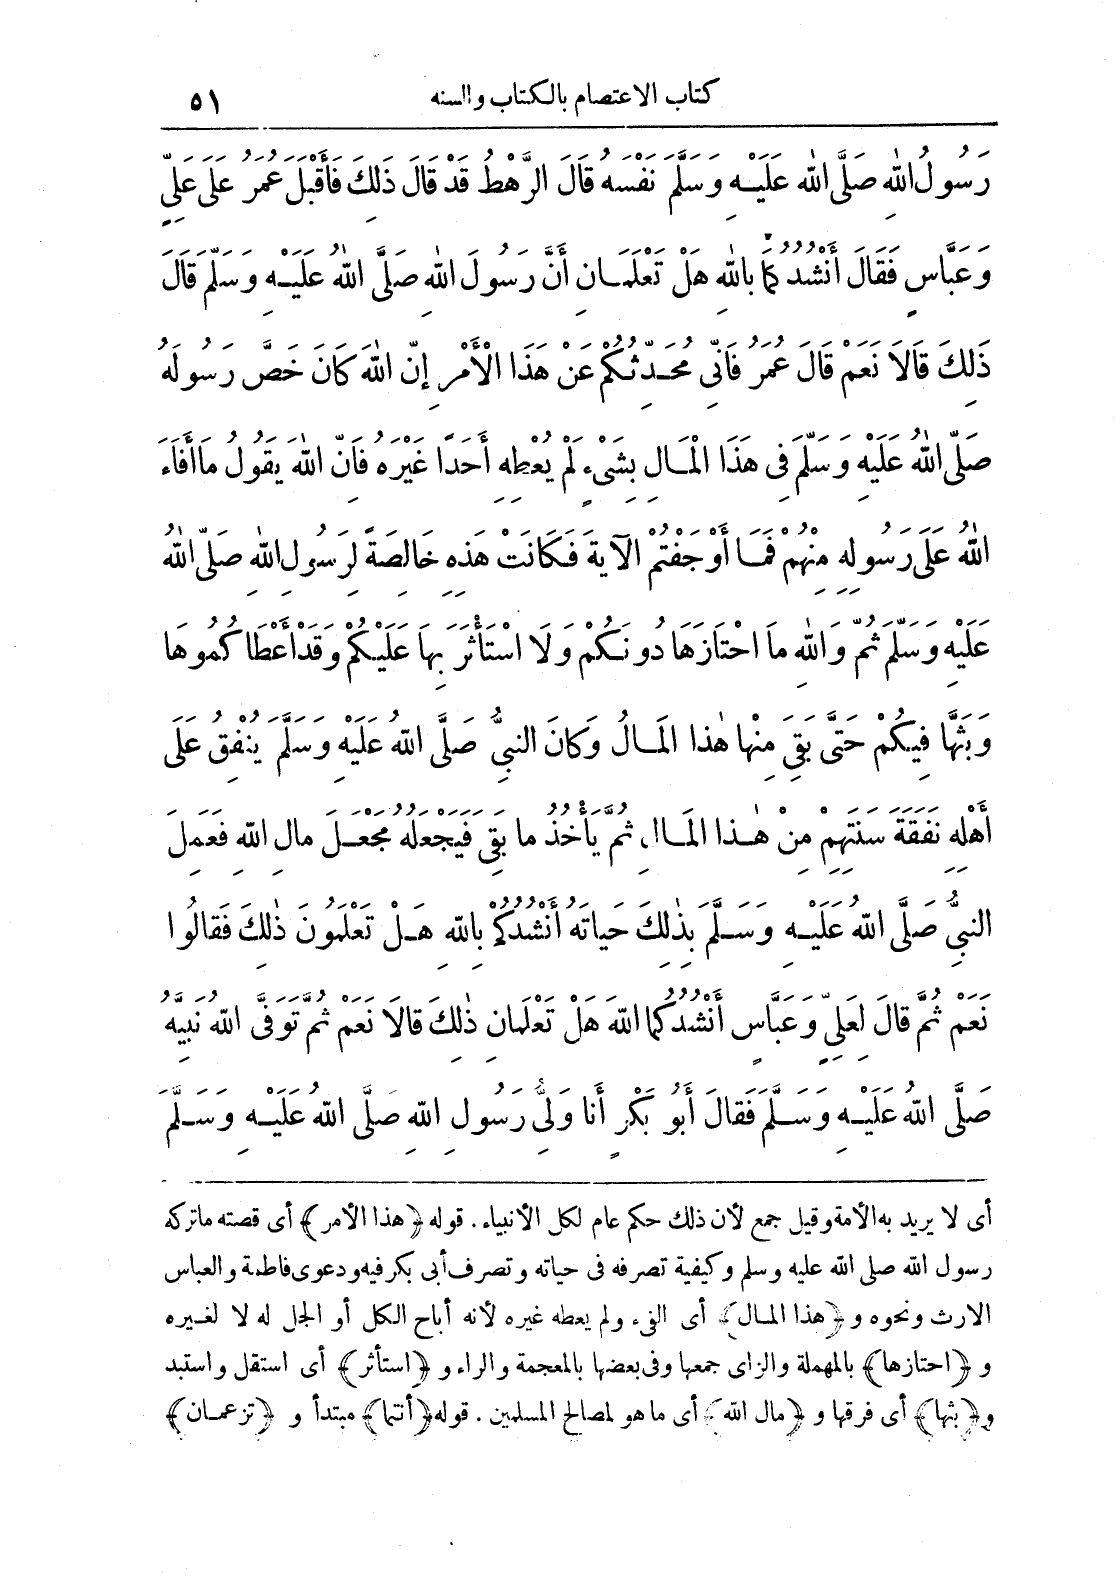 كتاب الاعتصام بالكتاب والسنه ٥١
رَسُولُ اللهِ صَلَّى اللهُ عَلَيْهِ وَسَلَّمَ نَفْسَهُ قَالَ الرَّهْطُ قَدْ قَالَ ذَلِكَ فَأَقْبَلَ عُمَرُ عَلَى عَلِيٍّ
وَعَبَّاسٍ فَقَالَ أَنْشُدُكُمَا بِاللهِ هَلْ تَعْلَمَانِ أَنَّ رَسُولَ اللهِ صَلَّى اللهُ عَلَيْهِ وَسَلَّمَ قَالَ
ذَلِكَ قَالَا نَعَمْ قَالَ عُمَرُ فَإِنِّي مُحَدِّثُكُمْ عَنْ هَذَا الْأَمْرِ إِنَّ اللهَ كَانَ خَصَّ رَسُولَهُ
صَلَّى اللهُ عَلَيْهِ وَسَلَّمَ فِى هَذَا الْمَالِ بِشَىْءٍ لَمْ يُعْطِهِ أَحَدًا غَيْرَهُ فَإِنَّ اللهَ يَقُولُ مَا أَفَاءَ
اللهُ عَلَى رَسُولِهِ مِنْهُمْ فَمَا أَوْجَفْتُمْ الْآيَةَ فَكَانَتْ هَذِهِ خَالِصَةً لِرَسُولِ اللهِ صَلَّى اللهُ
عَلَيْهِ وَسَلَّمَ ثُمَّ وَاللهِ مَا احْتَازَهَا دُونَكُمْ وَلَا اسْتَأْثَرَ بِهَا عَلَيْكُمْ وَقَدْ أَعْطَاكُمُوهَا
وَبَثَّهَا فِيكُمْ حَتَّى بَقِىَ مِنْهَا هٰذَا الْمَالُ وَكَانَ النَّبِىُّ صَلَّى اللهُ عَلَيْهِ وَسَلَّمَ يُنْفِقُ عَلَى
أَهْلِهِ نَفَقَةَ سَنَتِهِمْ مِنْ هٰذَا الْمَالِ ثُمَّ يَأْخُذُ مَا بَقِىَ فَيَجْعَلُهُ مَجْعَلَ مَالِ اللهِ فَعَمِلَ
النَّبِىُّ صَلَّى اللهُ عَلَيْهِ وَسَلَّمَ بِذٰلِكَ حَيَاتَهُ أَنْشُدُكُمْ بِاللهِ هَلْ تَعْلَمُونَ ذٰلِكَ فَقَالُوا
نَعَمْ ثُمَّ قَالَ لِعَلِىٍّ وَعَبَّاسٍ أَنْشُدُكُمَا اللهَ هَلْ تَعْلَمَانِ ذٰلِكَ قَالَا نَعَمْ ثُمَّ تَوَفَّى اللهُ نَبِيَّهُ
صَلَّى اللهُ عَلَيْهِ وَسَلَّمَ فَقَالَ أَبُو بَكْرٍ أَنَا وَلِىُّ رَسُولِ اللهِ صَلَّى اللهُ عَلَيْهِ وَسَلَّمَ
أى لا يريد به الأمة وقيل جمع لأن ذلك حكم عام لكل الأنبياء . قوله ﴿هذا الأمر﴾ أى قصته ما تركه
رسول الله صلى الله عليه وسلم وكيفية تصرفه فى حياته وتصرف أبى بكر فيه ودعوى فاطمة والعباس
الارث ونحوه و ﴿هذا المال﴾ أى الفىء ولم يعطه غيره لأنه أباح الكل أو الجل له لا لغيره
و ﴿احتازها﴾ بالمهملة والزاى جمعها وفى بعضها بالمعجمة والراء و ﴿استأثر﴾ أى استقل واستبد
و ﴿بثها﴾ أى فرقها و ﴿مال الله﴾ أى ما هو لمصالح المسلمين . قوله ﴿أنتما﴾ مبتدأ و ﴿تزعمان﴾